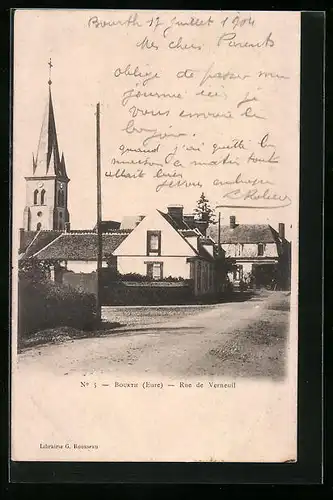 Bourth 17 juillet 1904
Mes chers Parents
obligé de passer ma
journée ici je
vous envoie le
bonjour
quand j'ai quitté la
ce matin tout
allait bien
je vous embrasse
Nº 5 — BOURTH (Eure) — Rue de Verneuil
Librairie G. Rousseau